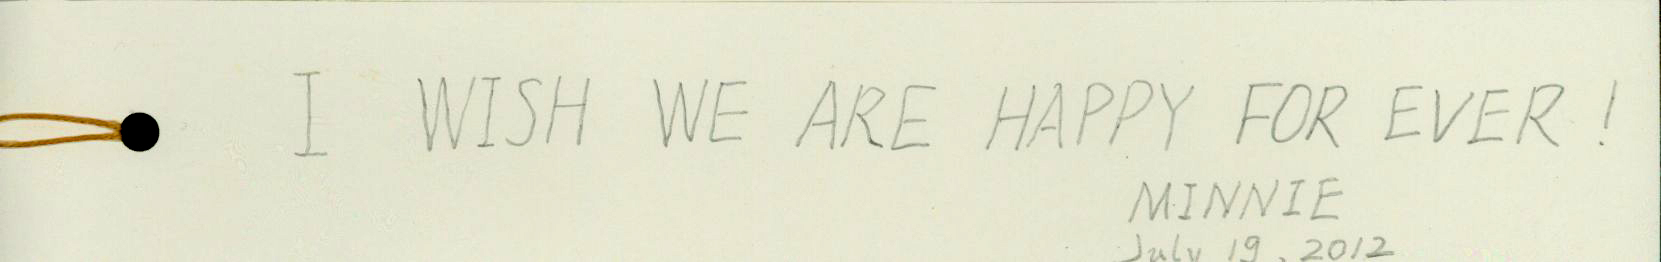 I WISH WE ARE HAPPY FOR EVER!
MINNIE
July 19, 2012